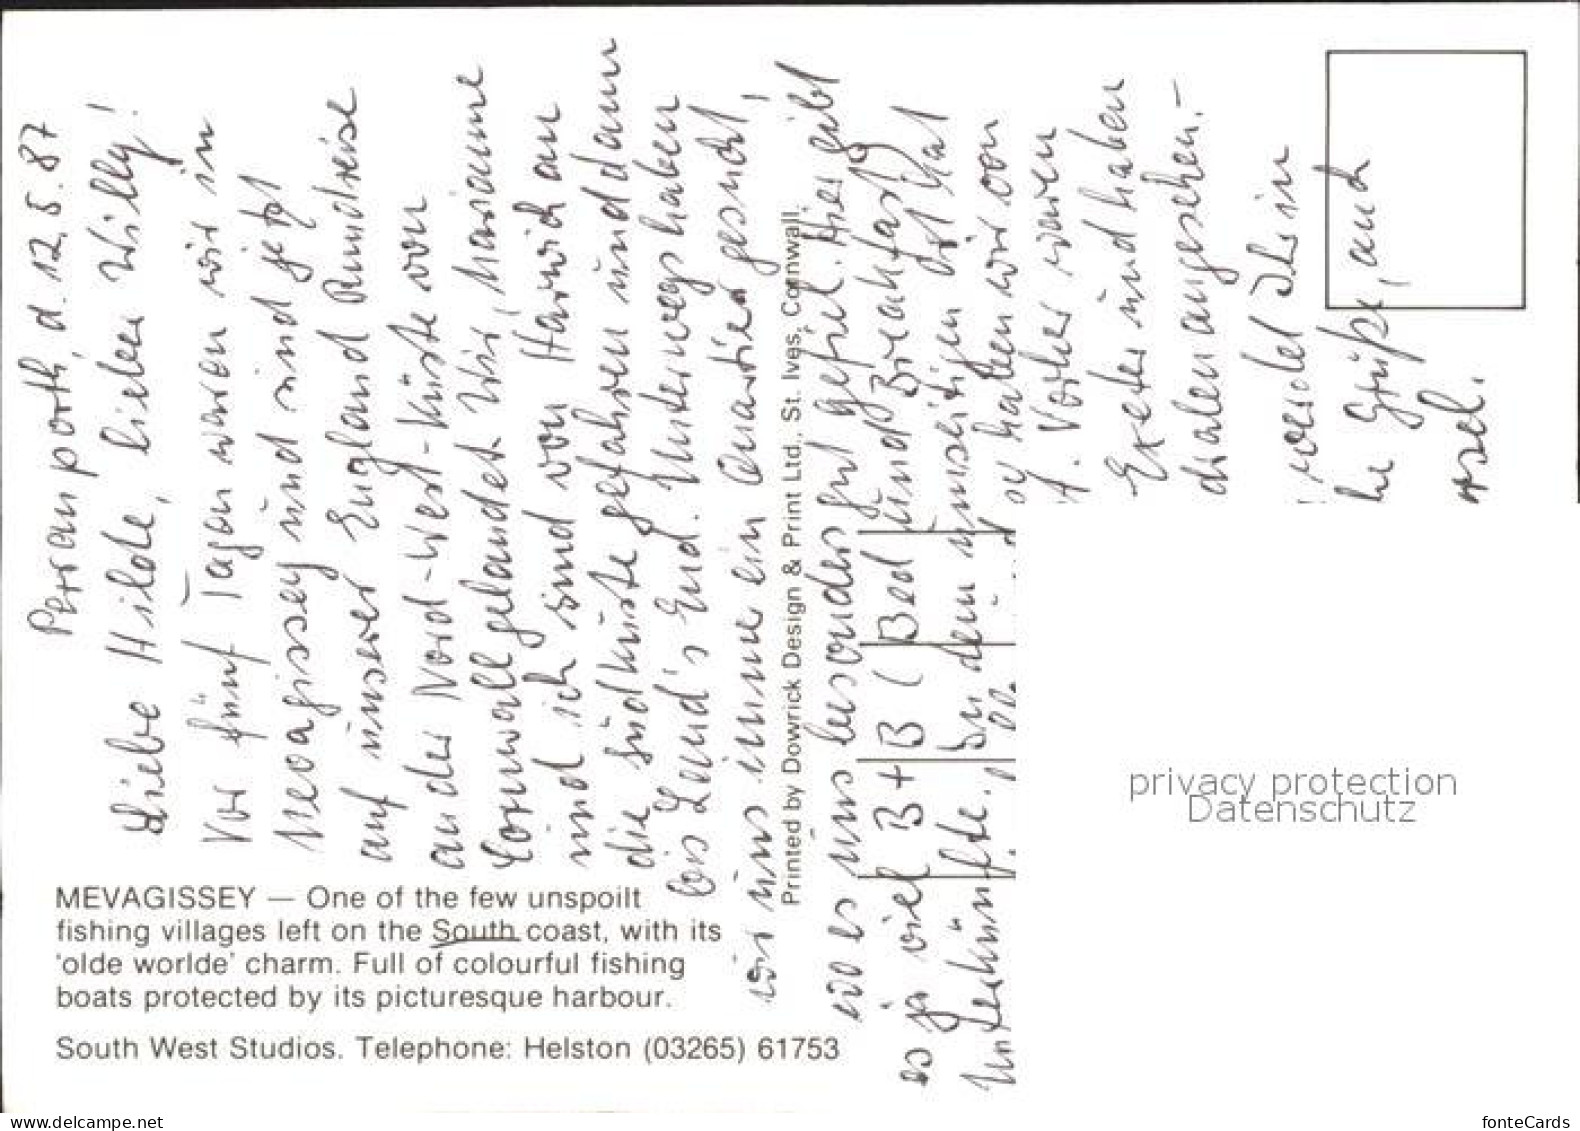 Perranporth, d. 12.5.87
Liebe Hilde, lieber Willy!
Vor fünf Tagen waren wir in
Mevagissey und sind jetzt
auf unserer England Rundreise
an der Nord-West-Küste von
Cornwall gelandet. Wir, Marianne
und ich sind von Harwich an
die Südküste gefahren und dann
bis Land's End. Unterwegs haben
wir uns immer ein Quartier gesucht,
wo es uns besonders gut gefiel. Hier gibt
es ja viel B+B (Bed und Breakfast)
Unterkünfte. In dem umseitigen Ort hat
haben wir von
Vorher waren
Exeter und haben
dralen angesehen.-
he Grüße, auch
MEVAGISSEY — One of the few unspoilt
fishing villages left on the South coast, with its
'olde worlde' charm. Full of colourful fishing
boats protected by its picturesque harbour.
South West Studios. Telephone: Helston (03265) 61753
Printed by Dowrick Design & Print Ltd., St. Ives, Cornwall.
privacy protection
Datenschutz
www.delcampe.net
fonteCards